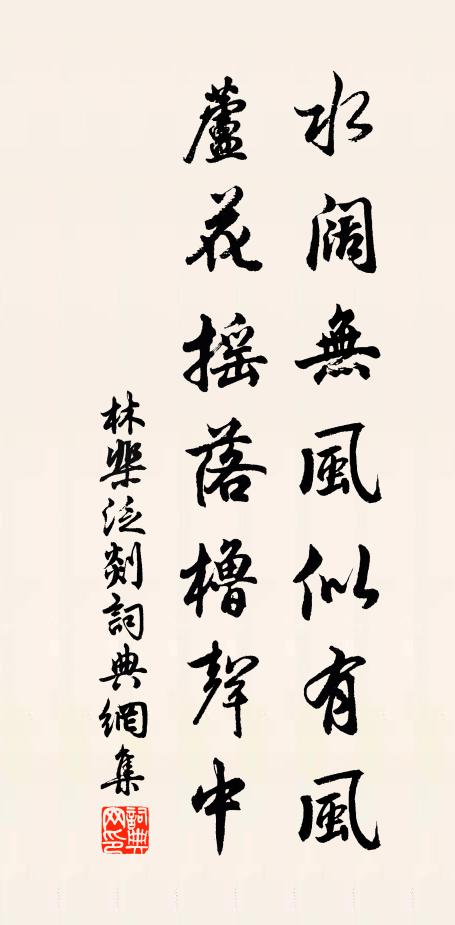 水闊無風似有風
蘆花搖落櫓聲中
林槩泛剡詞典網集
詞典网印